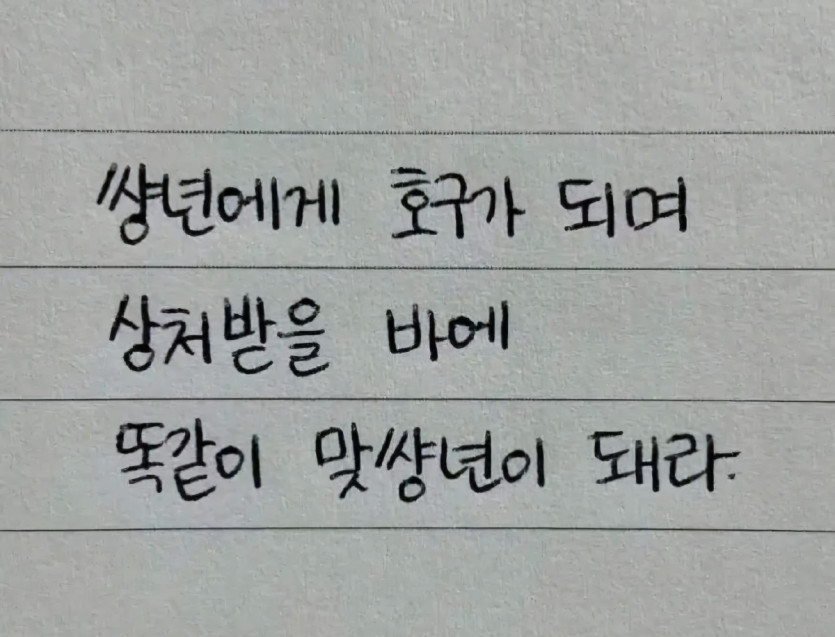 썅년에게 호구가 되며
상처받을 바에
똑같이 맞썅년이 돼라.